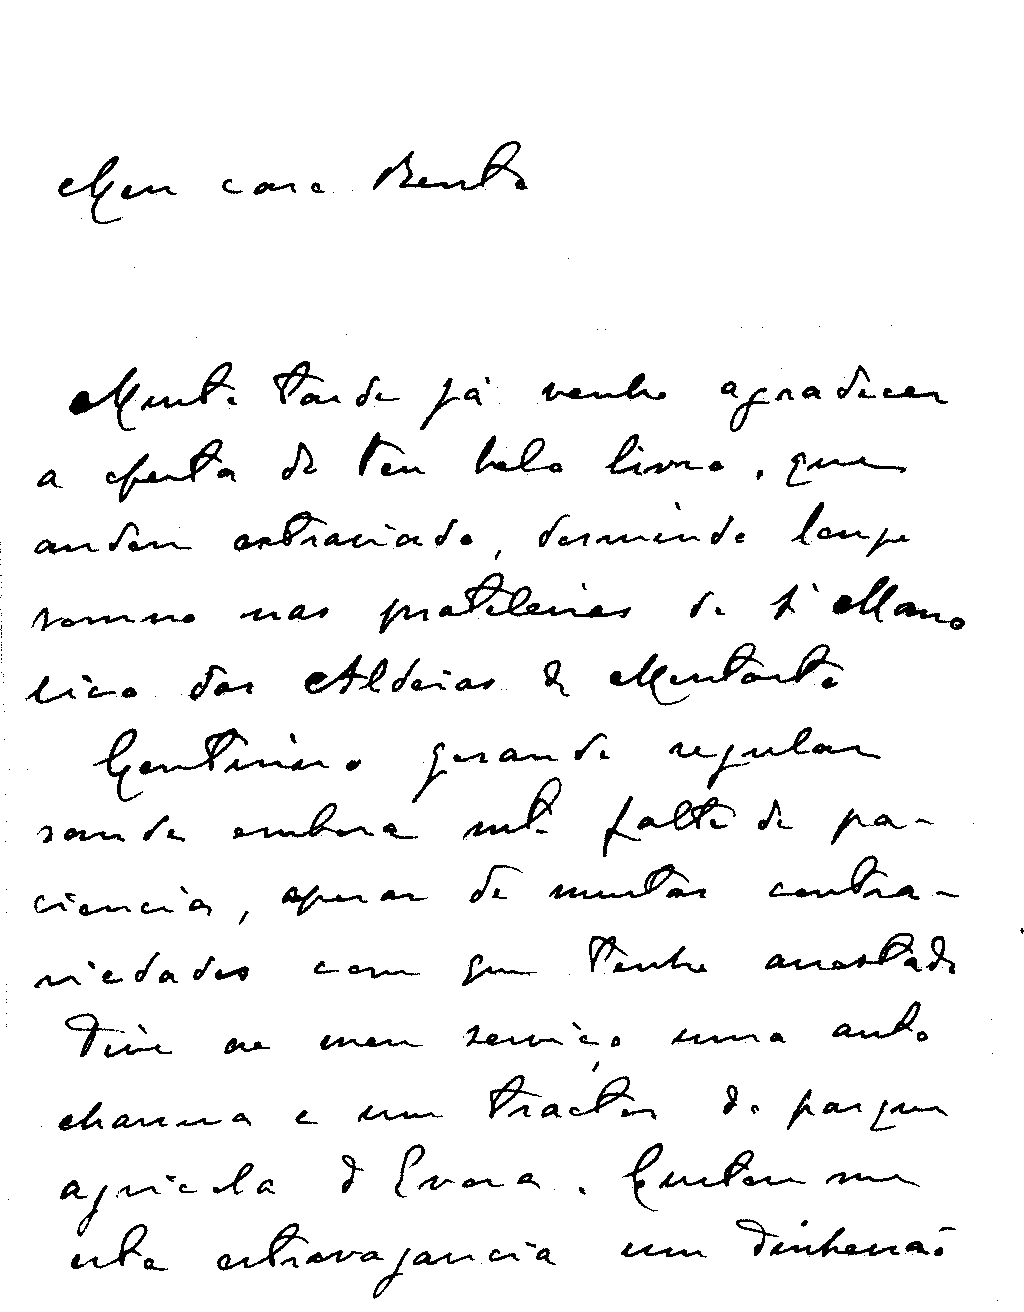 Meu caro Bento
Muito tarde já venho agradecer
a oferta do teu belo livro, que
andou extraviado, dormindo longo
somno nas prateleiras do
das Aldeias de
Continuo gosando regular
saude embora mta falta de pa-
ciencia, apesar de muitas contra-
riedades com que tenho arrostado
Tive ao meu serviço uma auto
charrua e um tractor do parque
agricola d'Evora. Custou me
esta extravagancia um dinheirão